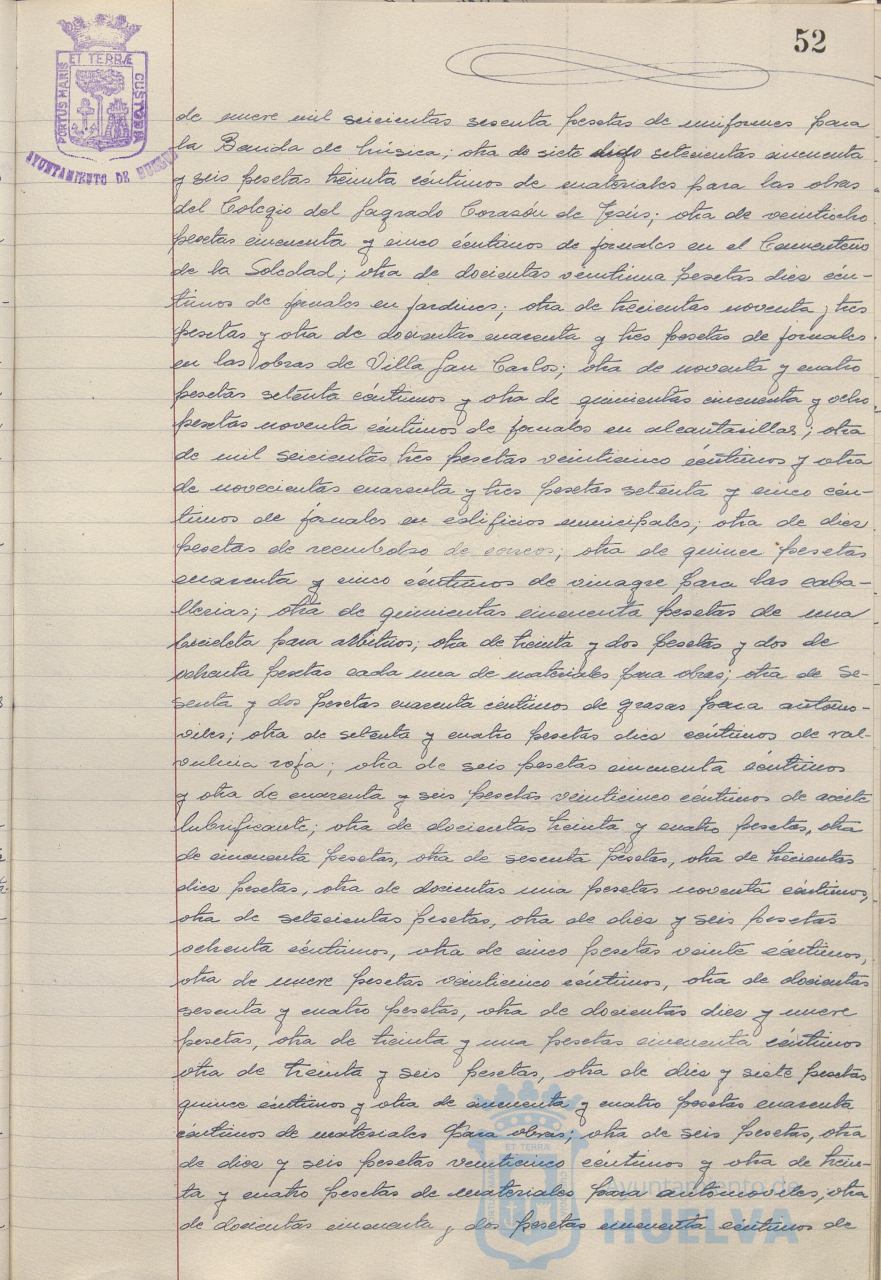 52
PORTUS MARIS ET TERRÆ CUSTODIA
AYUNTAMIENTO DE HUELVA
de nueve mil seicientas sesenta pesetas de uniformes para
la Banda de Música; otra de siete digo setecientas cincuenta
y seis pesetas treinta céntimos de materiales para las obras
del Colegio del Sagrado Corazón de Jesús; otra de veintiocho
pesetas cincuenta y cinco céntimos de jornales en el Cementerio
de la Soledad; otra de docientas veintiuna pesetas diez cén-
timos de jornales en jardines; otra de trecientas noventa y tres
pesetas y otra de docientas cuarenta y tres pesetas de jornales
en las obras de Villa San Carlos; otra de noventa y cuatro
pesetas setenta céntimos y otra de quinientas cincuenta y ocho
pesetas noventa céntimos de jornales en alcantarillas; otra
de mil seicientas tres pesetas veinticinco céntimos y otra
de novecientas cuarenta y tres pesetas setenta y cinco cén-
timos de jornales en edificios municipales; otra de diez
pesetas de reembolso de correos; otra de quince pesetas
cuarenta y cinco céntimos de vinagre para las caba-
llerias; otra de quinientas cincuenta pesetas de una
bicicleta para arbitrios; otra de treinta y dos pesetas y dos de
ochenta pesetas cada una de materiales para obras; otra de se-
senta y dos pesetas cuarenta céntimos de grasas para automo-
viles; otra de setenta y cuatro pesetas diez céntimos de val-
vulina roja; otra de seis pesetas cincuenta céntimos
y otra de cuarenta y seis pesetas veinticinco céntimos de aceite
lubrificante; otra de docientas treinta y cuatro pesetas, otra
de cincuenta pesetas, otra de sesenta pesetas, otra de trecientas
diez pesetas, otra de docientas una pesetas noventa céntimos,
otra de setecientas pesetas, otra de diez y seis pesetas
ochenta céntimos, otra de cinco pesetas veinte céntimos,
otra de nueve pesetas veinticinco céntimos, otra de docientas
sesenta y cuatro pesetas, otra de docientas diez y nueve
pesetas, otra de treinta y una pesetas cincuenta céntimos
otra de treinta y seis pesetas, otra de diez y siete pesetas
quince céntimos y otra de cincuenta y cuatro pesetas cuarenta
céntimos de materiales para obras; otra de seis pesetas, otra
de diez y seis pesetas veinticinco céntimos y otra de trein-
ta y cuatro pesetas de materiales para automoviles; otra
de docientas cincuenta y dos pesetas cincuenta céntimos de
Ayuntamiento de
HUELVA